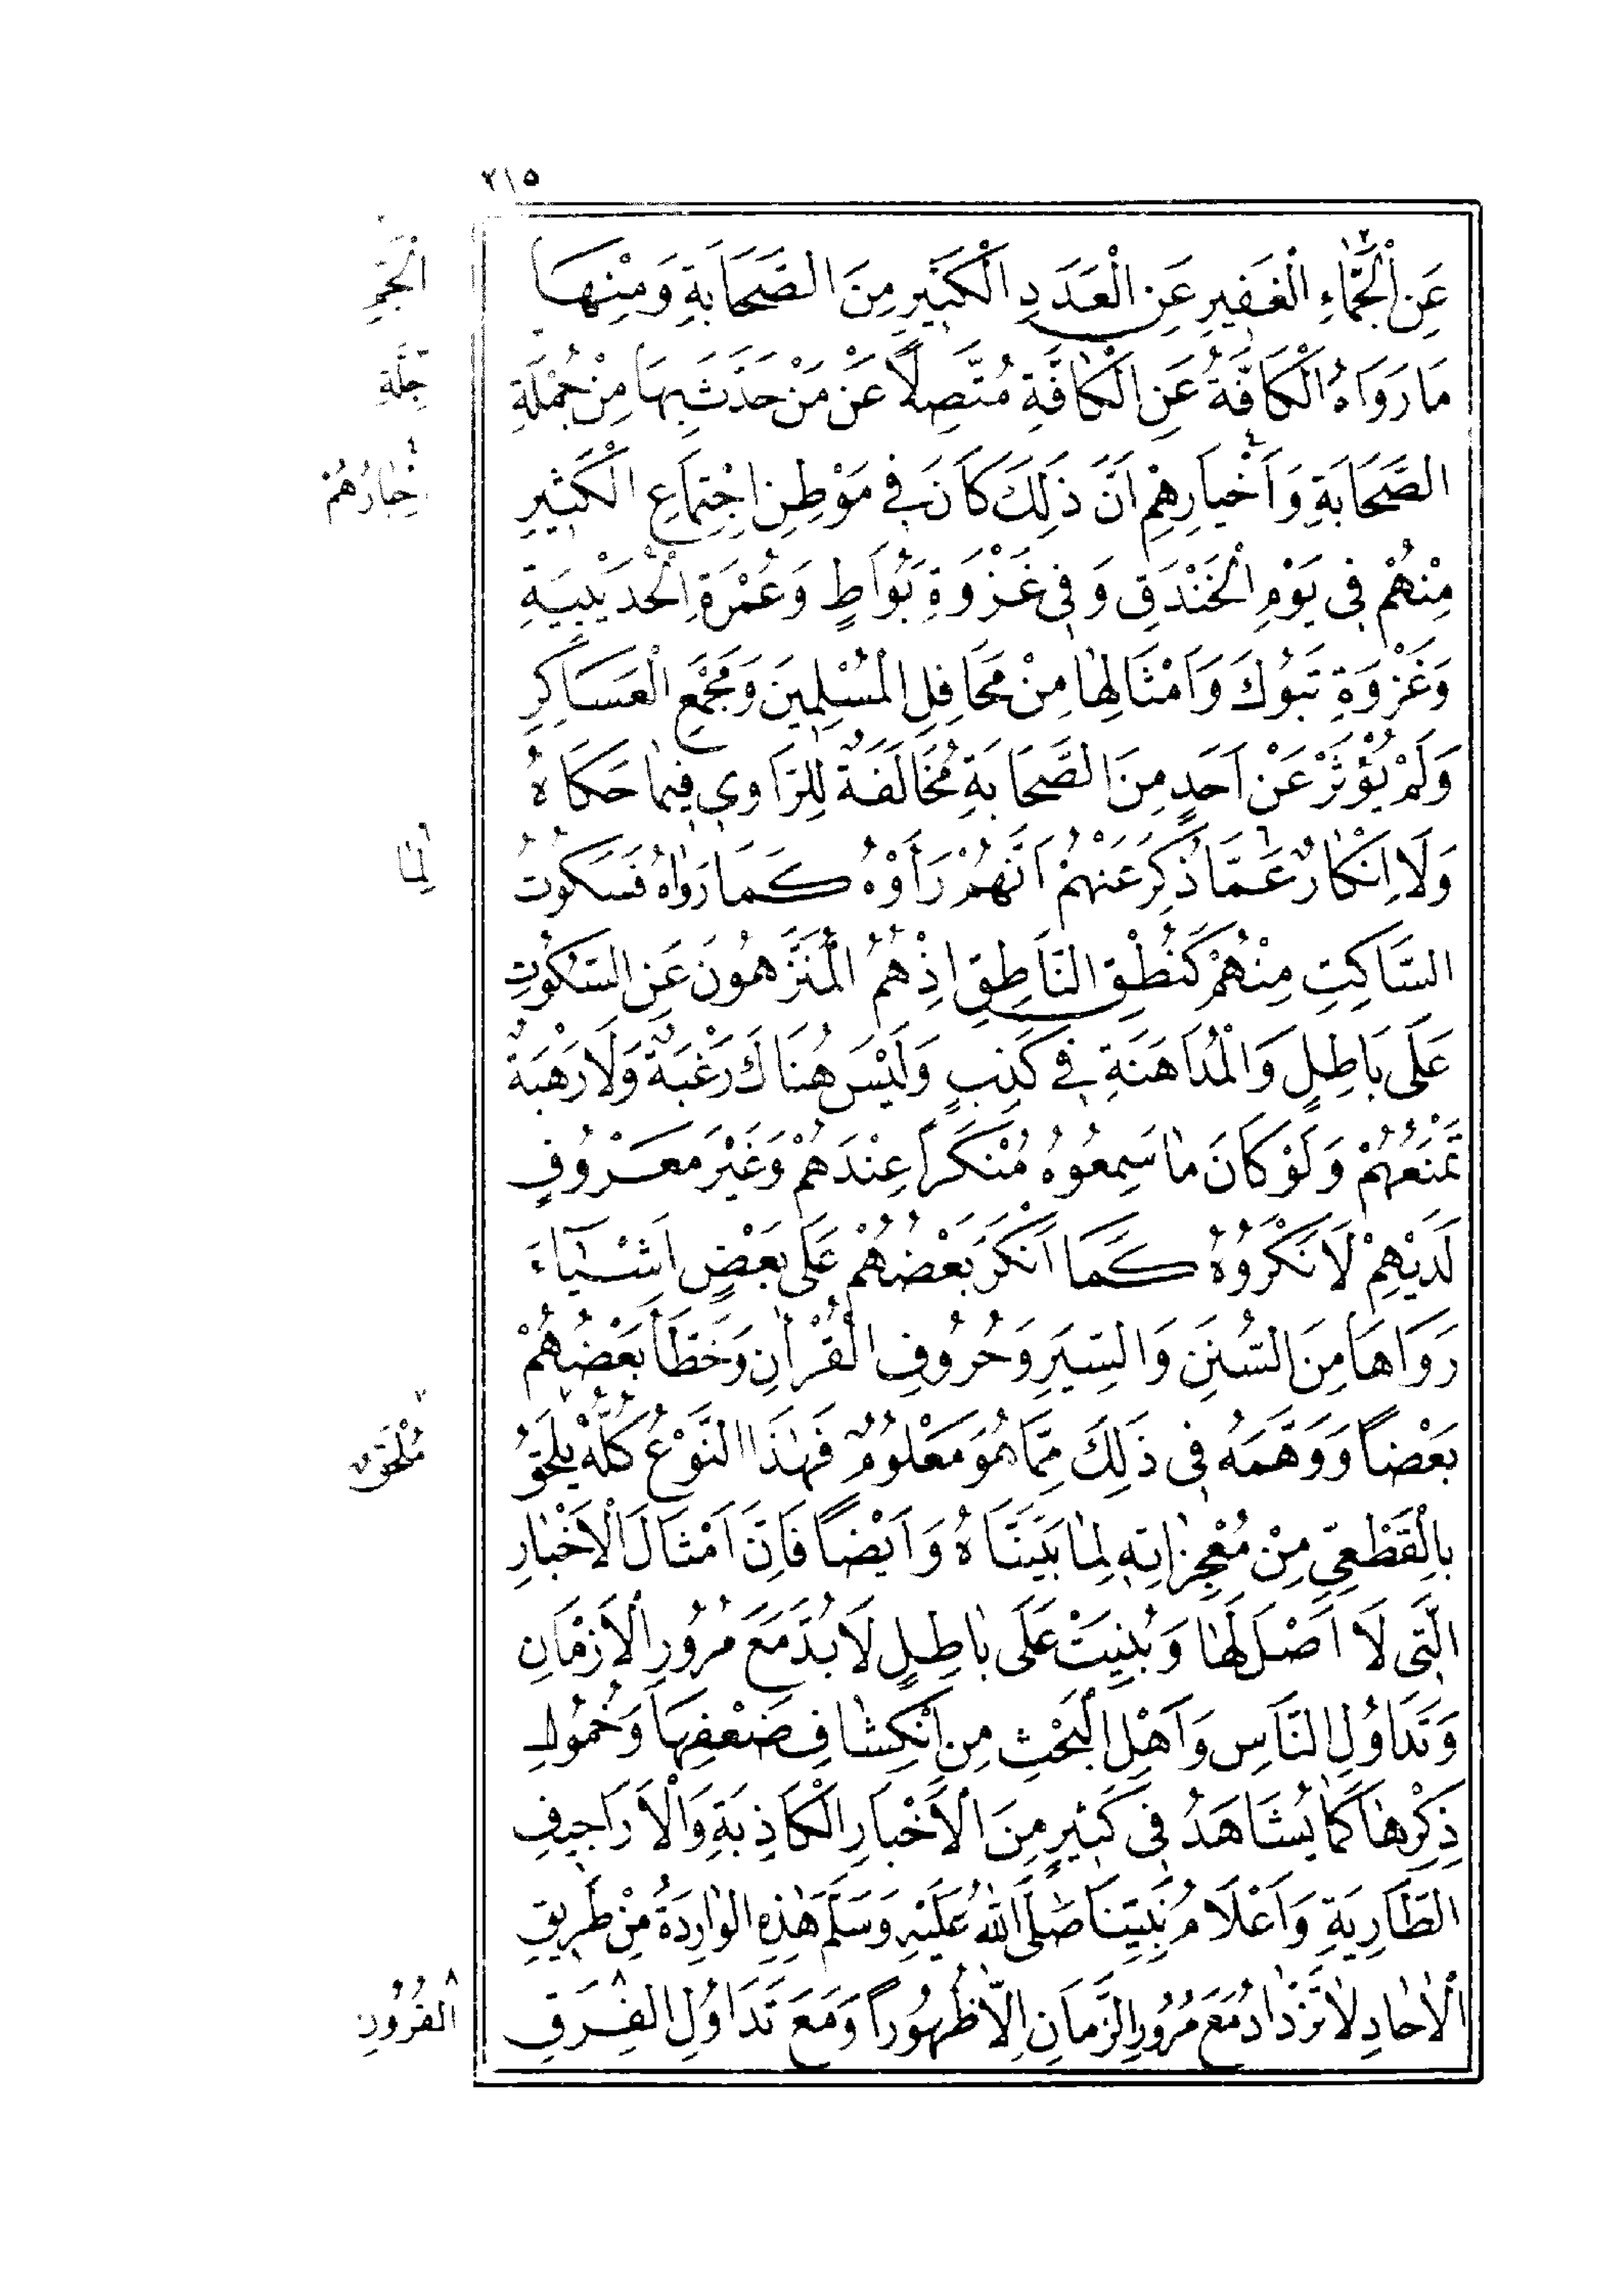 ٢١٥
عَنِ الْجَمَّاءِ الْغَفِيرِ عَنِ الْعَدَدِ الْكَثِيرِ مِنَ الصَّحَابَةِ وَمِنْهَا
مَا رَوَاهُ الْكَافَّةُ عَنِ الْكَافَّةِ مُتَّصِلًا عَنْ مَنْ حَدَّثَ بِهَا مِنْ جُمْلَةِ
الصَّحَابَةِ وَأَخْيَارِهِمْ أَنَّ ذَلِكَ كَانَ فِي مَوْطِنِ اجْتِمَاعِ الْكَثِيرِ
مِنْهُمْ فِى يَوْمِ الْخَنْدَقِ وَفِى غَزْوَةِ بَوَاطٍ وَعُمْرَةِ الْحُدَيْبِيَةِ
وَغَزْوَةِ تَبُوكَ وَاَمْثَالِهَا مِنْ مَحَافِلِ الْمُسْلِمِينَ وَمَجْمَعِ الْعَسَاكِرِ
وَلَمْ يُؤْثَرْ عَنْ اَحَدٍ مِنَ الصَّحَابَةِ مُخَالَفَةٌ لِلرَّاوِي فِيمَا حَكَاهُ
وَلَا اِنْكَارٌ عَمَّا ذُكِرَ عَنْهُمْ اَنَّهُمْ رَأَوْهُ كَمَا رَوَاهُ فَسُكُوتُ
السَّاكِتِ مِنْهُمْ كَنُطْقِ النَّاطِقِ اِذْ هُمُ الْمُنَزَّهُونَ عَنِ السُّكُوتِ
عَلَى بَاطِلٍ وَالْمُدَاهَنَةِ فِي كَذِبٍ وَلَيْسَ هُنَاكَ رَغْبَةٌ وَلَا رَهْبَةٌ
تَمْنَعُهُمْ وَلَوْ كَانَ مَا سَمِعُوهُ مُنْكَرًا عِنْدَهُمْ وَغَيْرَ مَعْرُوفٍ
لَدَيْهِمْ لَاَنْكَرُوهُ كَمَا اَنْكَرَ بَعْضُهُمْ عَلَى بَعْضٍ اَشْيَآءَ
رَوَاهَا مِنَ السُّنَنِ وَالسِّيَرِ وَحُرُوفِ الْقُرْاٰنِ وَخَطَّأَ بَعْضُهُمْ
بَعْضًا وَوَهَّمَهُ فِى ذَلِكَ مِمَّا هُوَ مَعْلُومٌ فَهٰذَا النَّوْعُ كُلُّهُ يُلْحَقُ
بِالْقَطْعِيِّ مِنْ مُعْجِزَاتِهِ لِمَا بَيَّنَّاهُ وَاَيْضًا فَاِنَّ اَمْثَالَ الْاَخْبَارِ
الَّتِى لَا اَصْلَ لَهَا وَبُنِيَتْ عَلَى بَاطِلٍ لَابُدَّ مَعَ مُرُورِ الْاَزْمَانِ
وَتَدَاوُلِ النَّاسِ وَاَهْلِ الْبَحْثِ مِنِ انْكِشَافِ ضَعْفِهَا وَخُمُولِ
ذِكْرِهَا كَمَا يُشَاهَدُ فِى كَثِيرٍ مِنَ الْاَخْبَارِ الْكَاذِبَةِ وَالْاَرَاجِيفِ
الطَّارِيَةِ وَاَعْلَامُ نَبِيِّنَا صَلَّى اللّٰهُ عَلَيْهِ وَسَلَّمَ هَذِهِ الْوَارِدَةُ مِنْ طَرِيقِ
الْاٰحَادِ لَا تَزْدَادُ مَعَ مُرُورِ الزَّمَانِ اِلَّا ظُهُورًا وَمَعَ تَدَاوُلِ الْفِرَقِ
الْجَمِّ
جِلَّةِ
٤ خِيَارُهُمْ
٦ لِمَا
٧ مُلْحَقٌ
٨ الْقُرُونِ